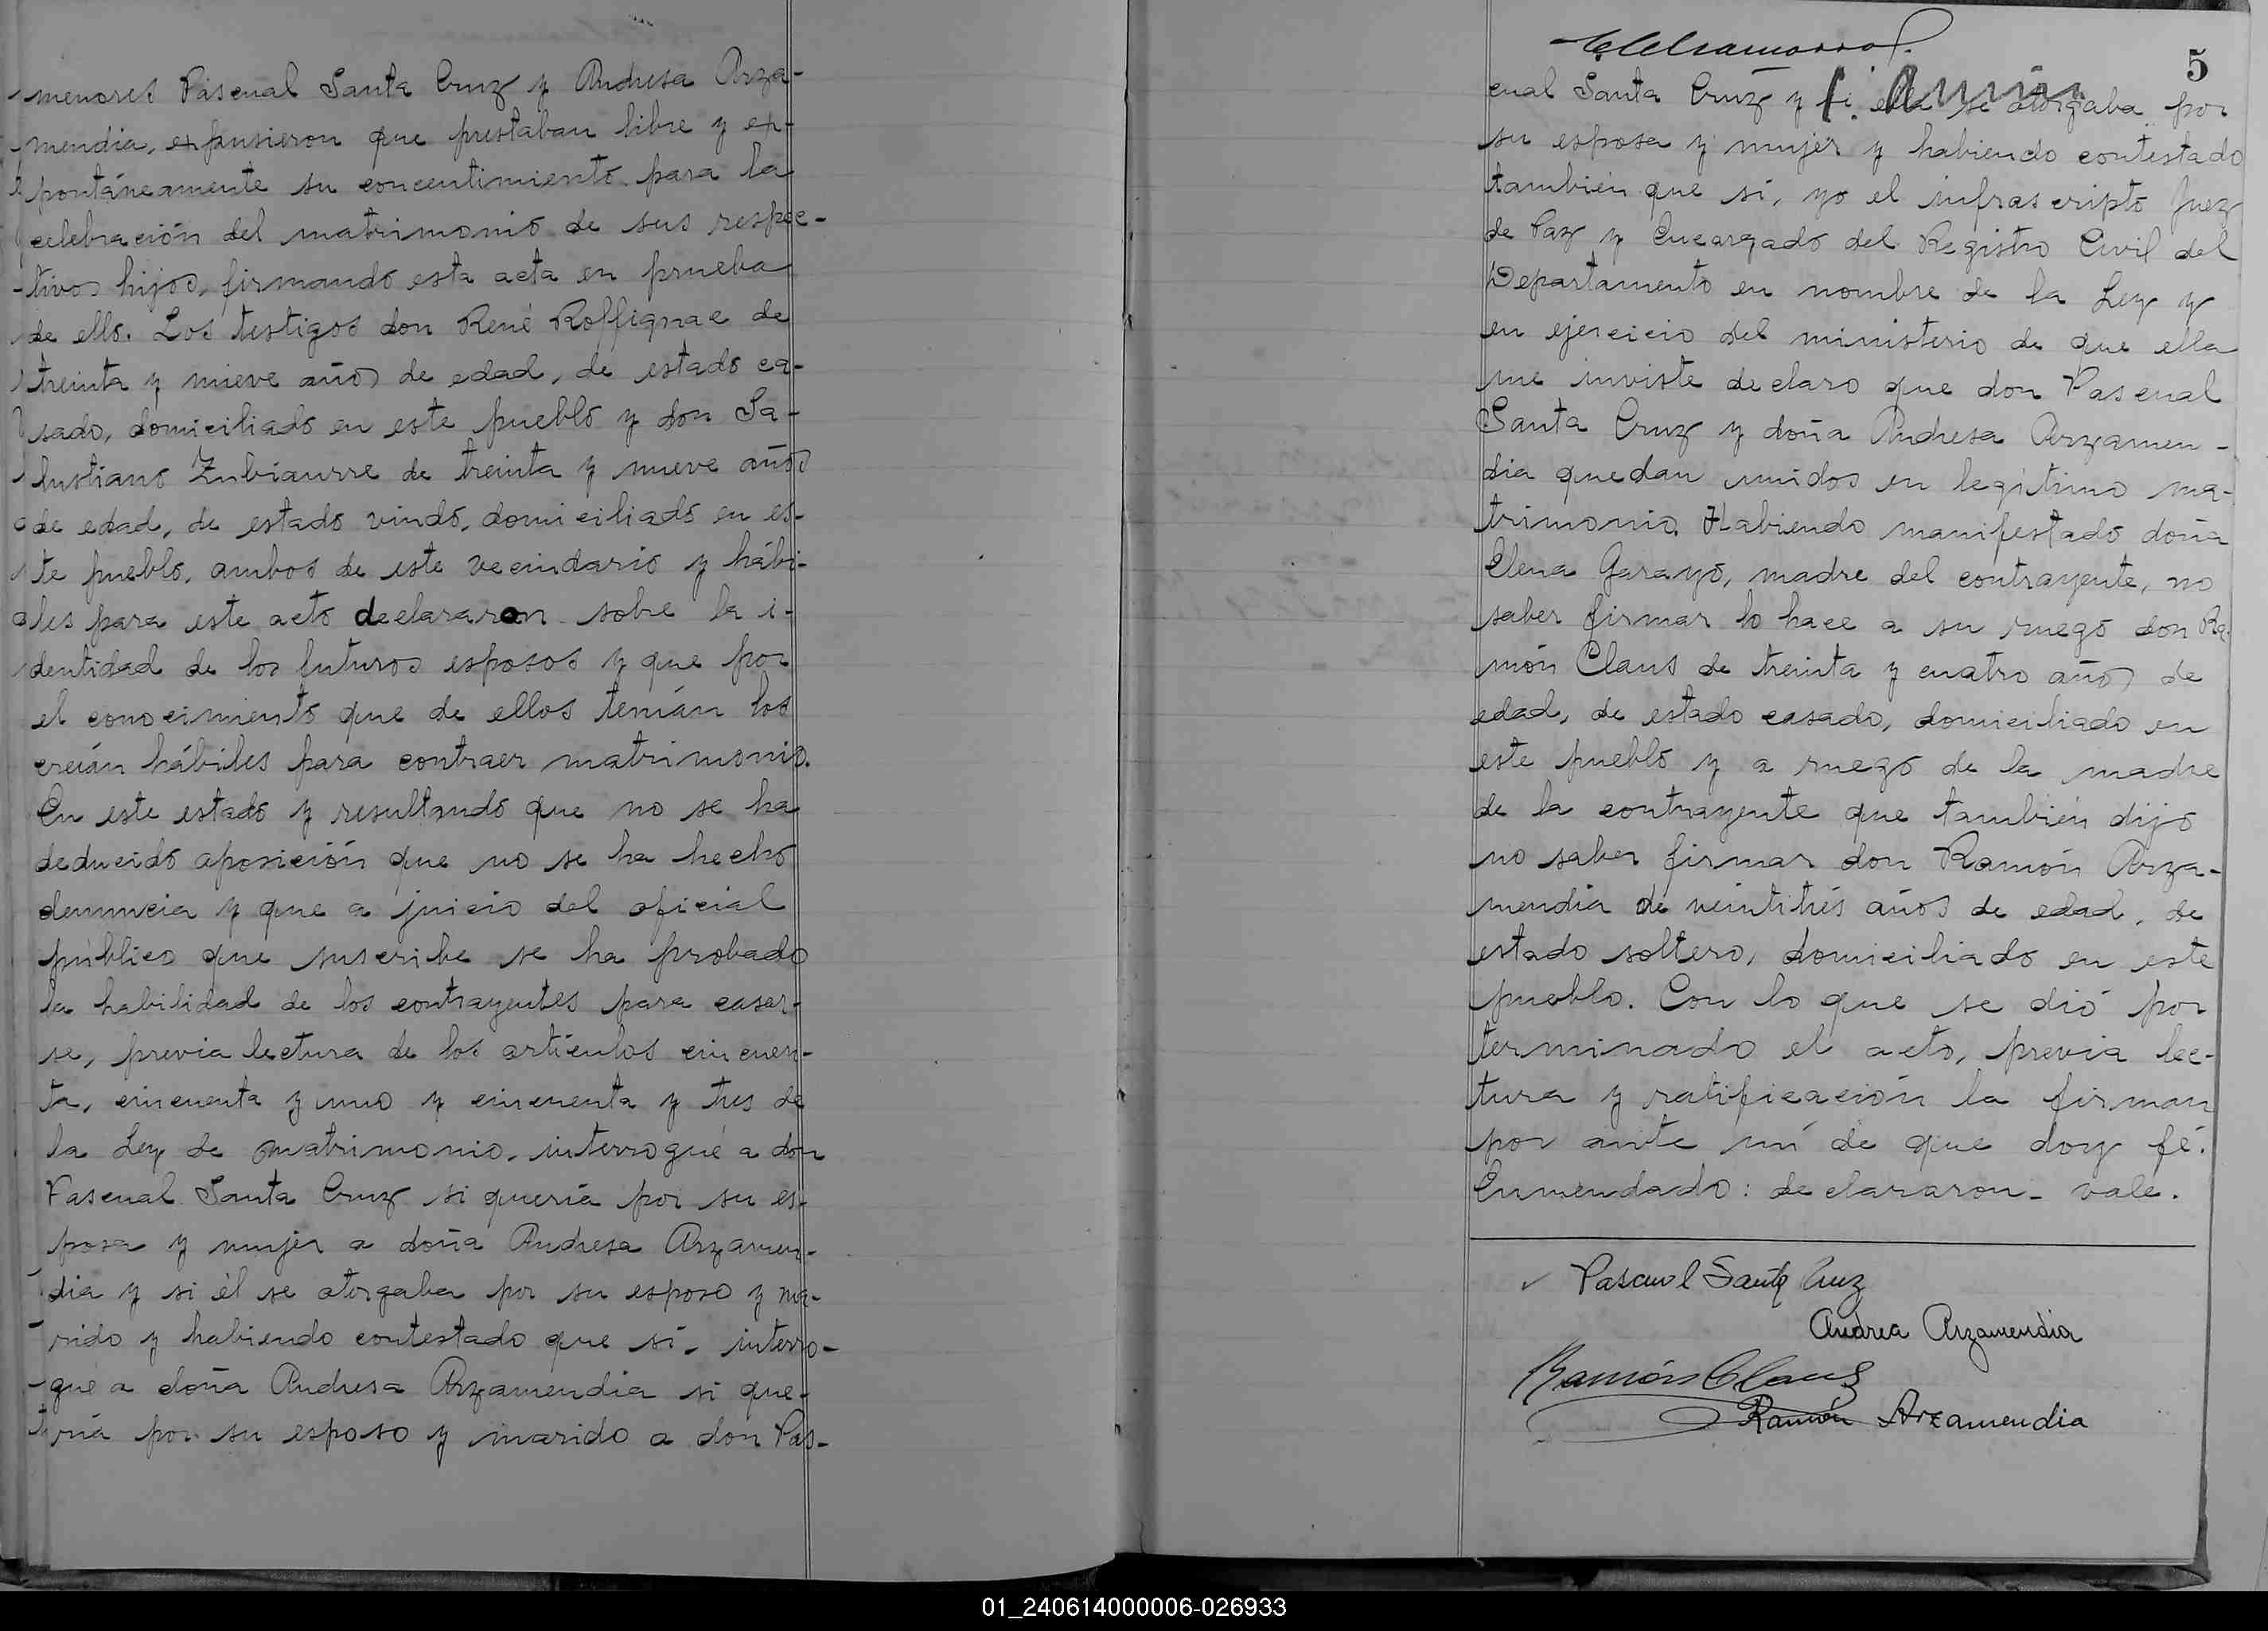 menores Pascual Santa Cruz y Andresa Arza-
mendia, expusieron que prestaban libre y es-
pontáneamente su concentimiento para la
celebración del matrimonio de sus respec-
tivos hijos, firmando esta acta en prueba
de ello. Los testigos don René Roffignac de
treinta y nueve años de edad, de estado ca-
sado, domiciliado en este pueblo y don Sa-
lustiano Zubiaurre de treinta y nueve años
de edad, de estado viudo, domiciliado en es-
te pueblo, ambos de este vecindario y hábi-
les para este acto declararon sobre la i-
dentidad de los futuros esposos y que por
el conocimiento que de ellos tenían los
creían hábiles para contraer matrimonio.
En este estado y resultando que no se ha
deducido oposición que no se ha hecho
denuncia y que a juicio del oficial
público que suscribe se ha probado
la habilidad de los contrayentes para casar-
se, previa lectura de los artículos cincuen-
ta, cincuenta y uno y cincuenta y tres de
la Ley de matrimonio, interrogué a don
Pascual Santa Cruz si quería por su es-
posa y mujer a doña Andresa Arzamen-
dia y si él se otorgaba por su esposo y ma-
rido y habiendo contestado que sí, interro-
gué a doña Andresa Arzamendia si que-
ría por su esposo y marido a don Pas-
5
cual Santa Cruz y si ella se otorgaba por
su esposa y mujer y habiendo contestado
también que sí, yo el infrascripto Juez
de Paz y Encargado del Registro Civil del
Departamento en nombre de la Ley y
en ejercicio del ministerio de que ella
me inviste declaro que don Pascual
Santa Cruz y doña Andresa Arzamen-
dia quedan unidos en legítimo ma-
trimonio. Habiendo manifestado doña
Elena Garayó, madre del contrayente, no
saber firmar lo hace a su ruego don Ra-
món Claus de treinta y cuatro años de
edad, de estado casado, domiciliado en
este pueblo y a ruego de la madre
de la contrayente que también dijo
no saber firmar don Ramón Arza-
mendia de veintitrés años de edad, de
estado soltero, domiciliado en este
pueblo. Con lo que se dió por
terminado el acto, previa lec-
tura y ratificación la firman
por ante mí de que doy fé.
Enmendado: declararon - vale.
Pascual Santa Cruz
Andrea Arzamendia
Ramón Claus
Ramón Arzamendia
01_240614000006-026933